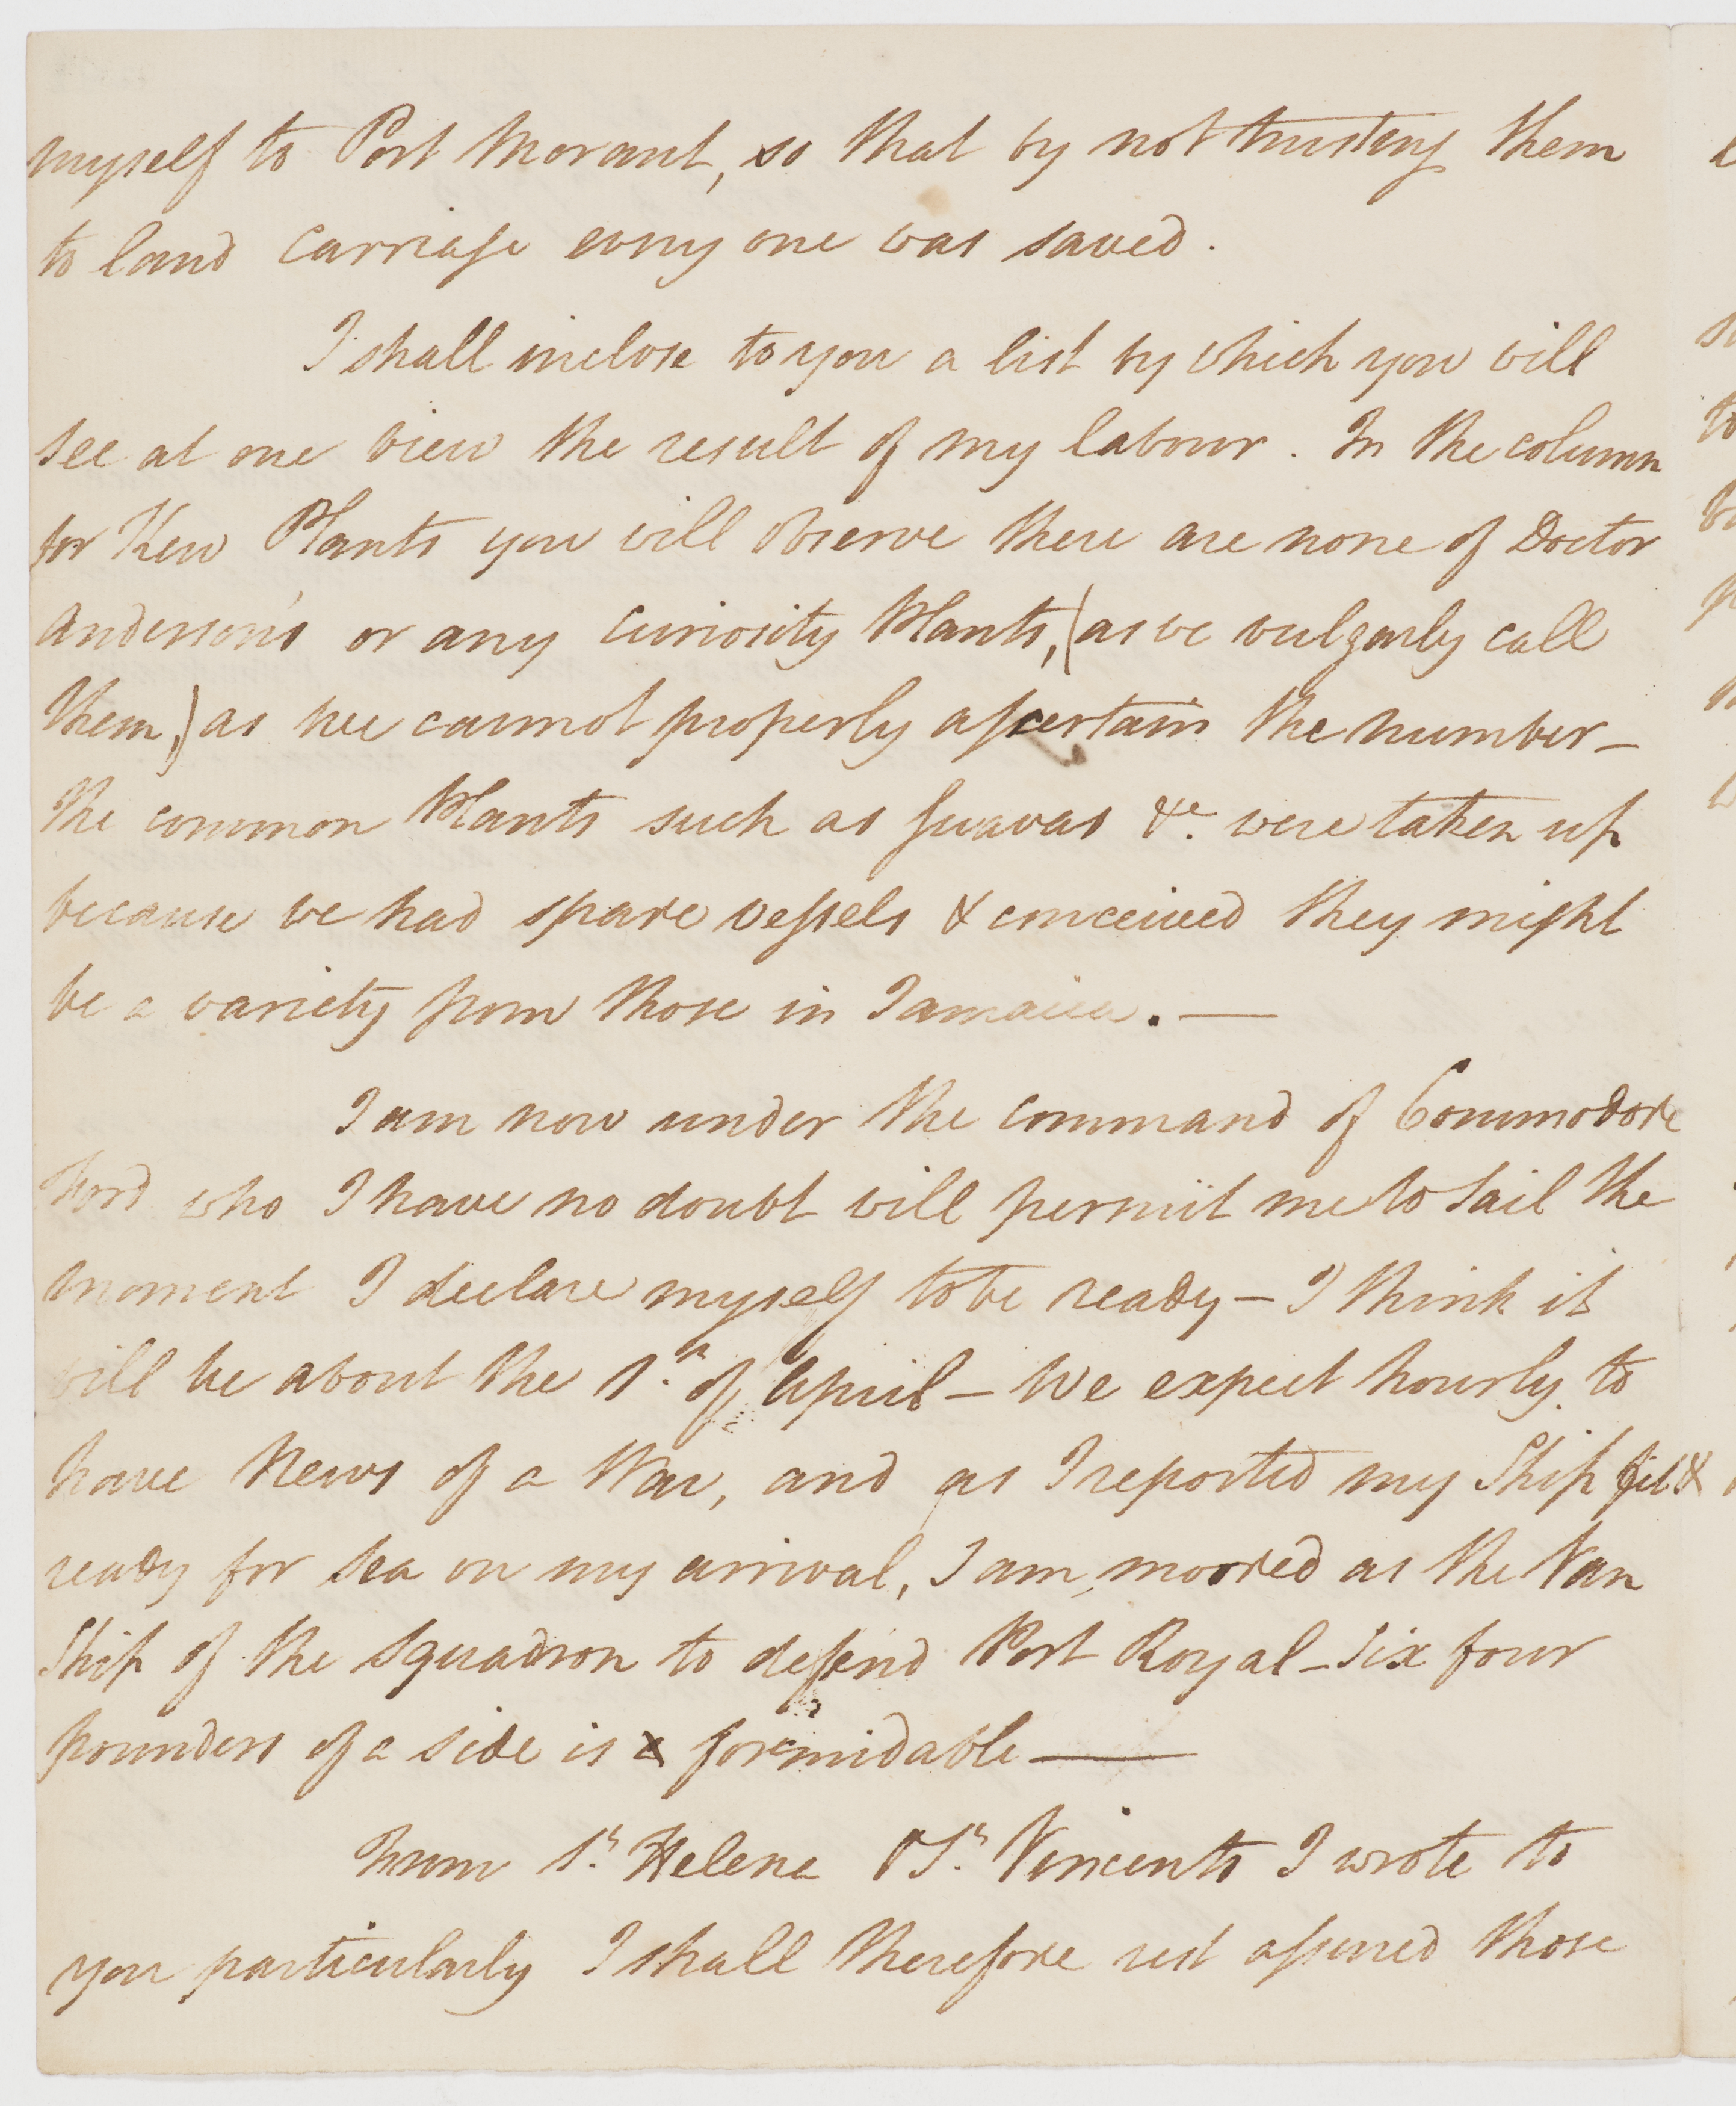 myself to Port Morant, so that by not trusting them
to land carriage every one was saved.
I shall inclose to you a list by which you will
see at one view the result of my labour. In the column
for Kew Plants you will observe there are none of Doctor
Anderson's or any Curiosity Plants, (as we vulgarly call
them,) as we cannot properly ascertain the number –
the common Plants such as Guavas &c. were taken up
because we had spare vessels & conceived they might
be a variety from those in Jamaica. —
I am now under the command of Commodore
Ford who I have no doubt will permit me to sail the
moment I declare myself to be ready – I think it
will be about the 1st. of April – We expect hourly to
have News of a War, and as I reported my Ship fit &
ready for sea on my arrival, I am moored as the Van
Ship of the Squadron to defend Port Royal – Six four
pounders of a side is formidable —
From St. Helena & St. Vincents I wrote to
you particularly I shall therefore rest assured those